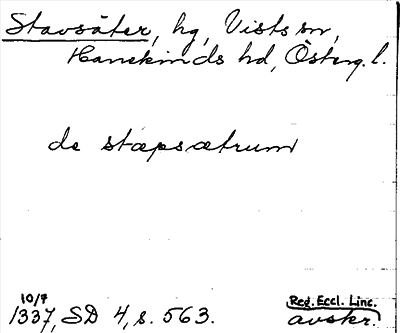 Stavsäter, hg, Vists sn,
Hanekinds hd, Österg. l.
de stæpsætrum
10/7
1337, SD 4, s. 563.
Reg. Eccl. Linc.
avskr.